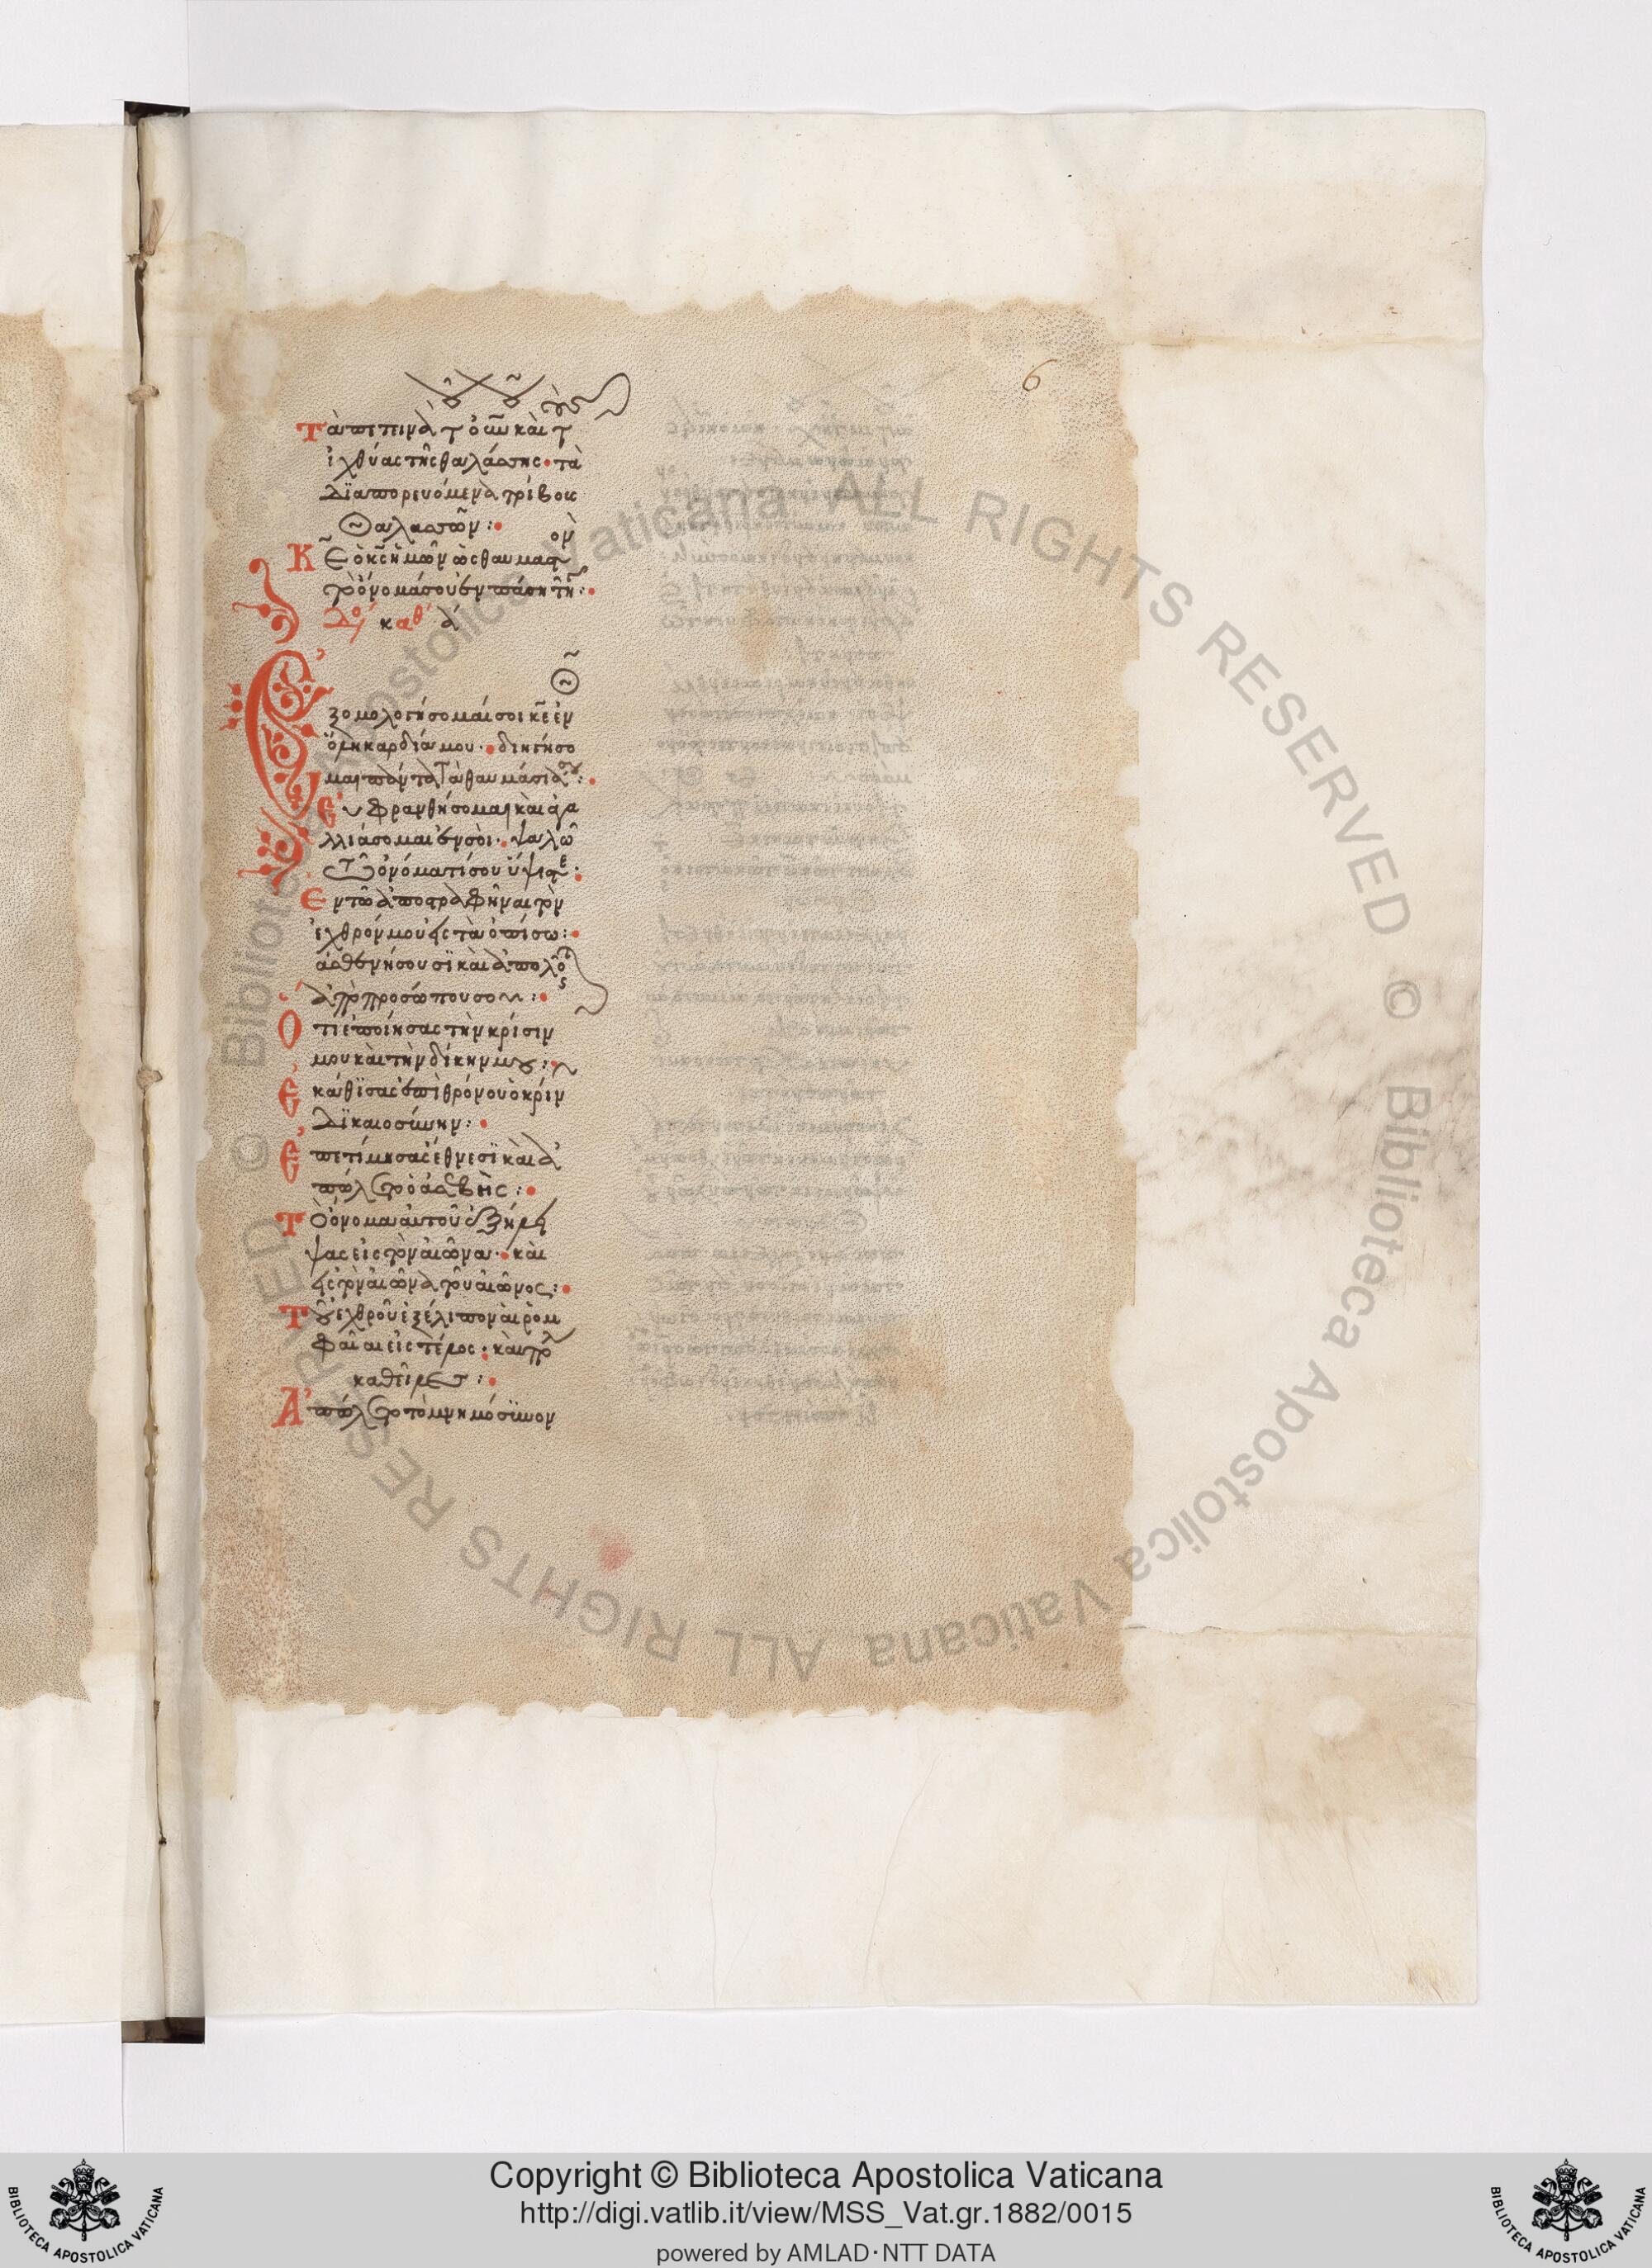 6
Τὰ πετεινὰ τοῦ οὐνοῦ καὶ τοὺς
ἰχθύας τῆς θαλάσσης· τὰ
διαπορευόμενα τρίβους
θαλασσῶν:
Κε ὁ κς ἡμῶν ὡς θαυμαστὸν
τὸ ὄνομά σου ἐν πάσῃ τῇ γῇ:
καθ
Ἐξομολογήσομαί σοι κε ἐν
ὅλῃ καρδίᾳ μου· διηγήσο
μαι πάντα τὰ θαυμάσιά σου:
Εὐφρανθήσομαι καὶ ἀγα
λλιάσομαι ἐν σοί· ψαλῶ
τῷ ὀνόματί σου ὕψιστε:
Ἐν τῷ ἀποστραφῆναι τὸν
ἐχθρόν μου εἰς τὰ ὀπίσω:
ἀσθενήσουσι καὶ ἀπολοῦνται
ἀπὸ προσώπου σου:
Ὅτι ἐποίησας τὴν κρίσιν
μου καὶ τὴν δίκην μου:
Ἐκάθισας ἐπὶ θρόνου ὁ κρίνων
δικαιοσύνην:
Ἐπετίμησας ἔθνεσι καὶ ἀ
πώλετο ὁ ἀσεβής:
Τὸ ὄνομα αὐτοῦ ἐξήλει
ψας εἰς τὸν αἰῶνα· καὶ
εἰς τὸν αἰῶνα τοῦ αἰῶνος:
Τοῦ ἐχθροῦ ἐξέλιπον αἱ ῥομ
φαῖαι εἰς τέλος· καὶ πόλεις
καθεῖλες:
Ἀπώλετο τὸ μνημόσυνον
Copyright © Biblioteca Apostolica Vaticana
http://digi.vatlib.it/view/MSS_Vat.gr.1882/0015
powered by AMLAD·NTT DATA
BIBLIOTECA APOSTOLICA VATICANA
BIBLIOTECA APOSTOLICA VATICANA
© Biblioteca Apostolica Vaticana ALL RIGHTS RESERVED © Biblioteca Apostolica Vaticana ALL RIGHTS RESERVED